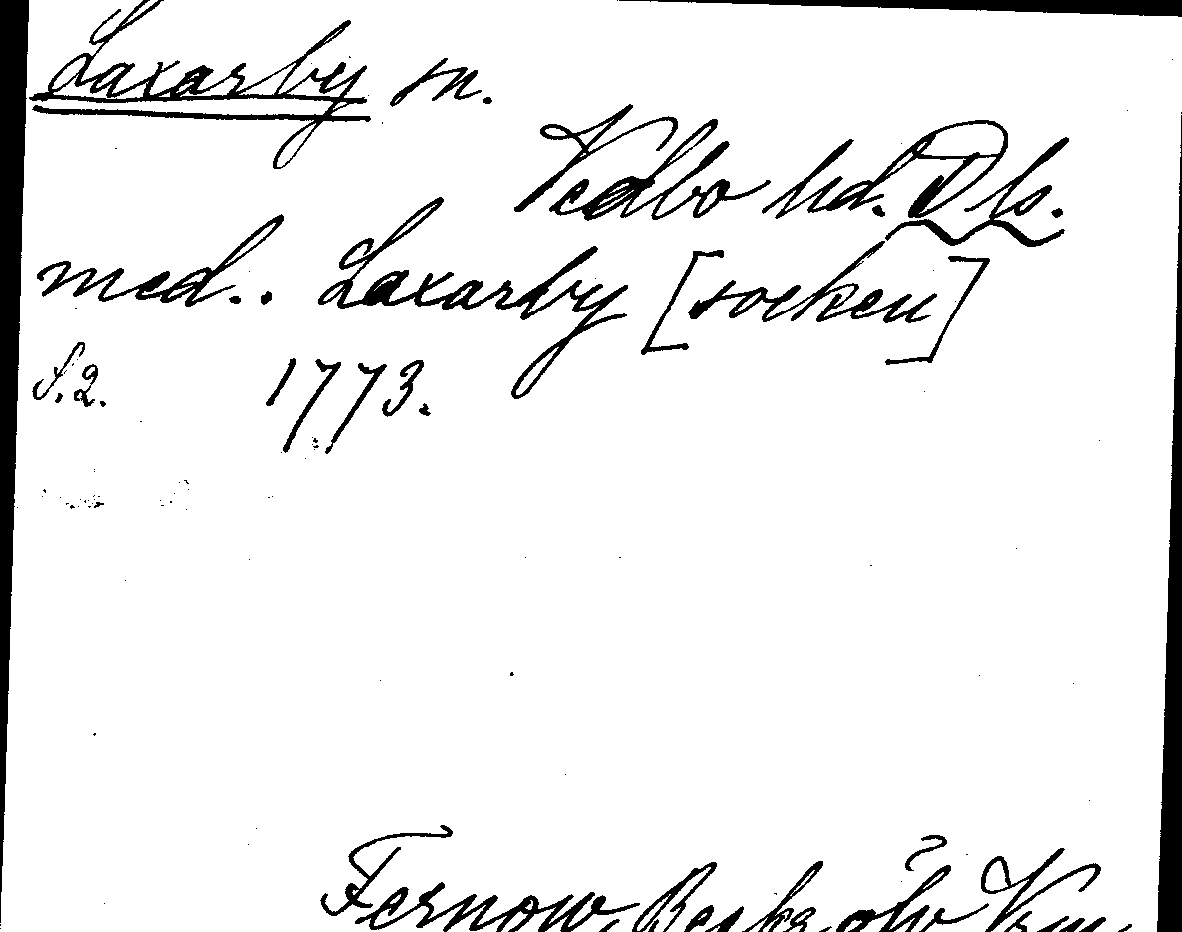 Laxarby sn.
Vedbo hd. Dls.
med.. Laxarby [socken]
S. 2. 1773.
Fernow, Beskr. öfv Vrm